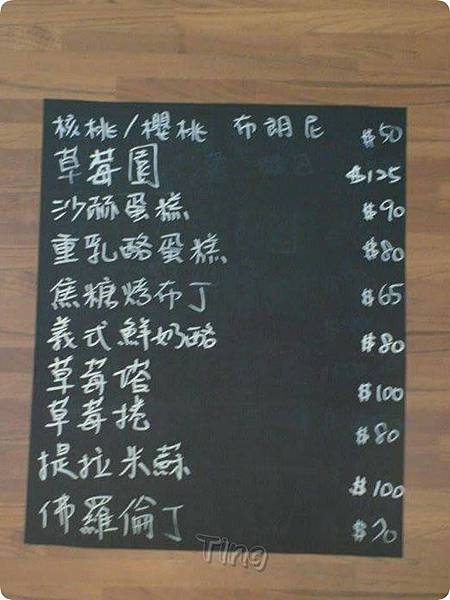 核桃/櫻桃 布朗尼 $50
草莓園 $125
沙酥蛋糕 $90
重乳酪蛋糕 $80
焦糖烤布丁 $65
義式鮮奶酪 $80
草莓塔 $100
草莓捲 $80
提拉米蘇 $100
佛羅倫丁 $70
Ting